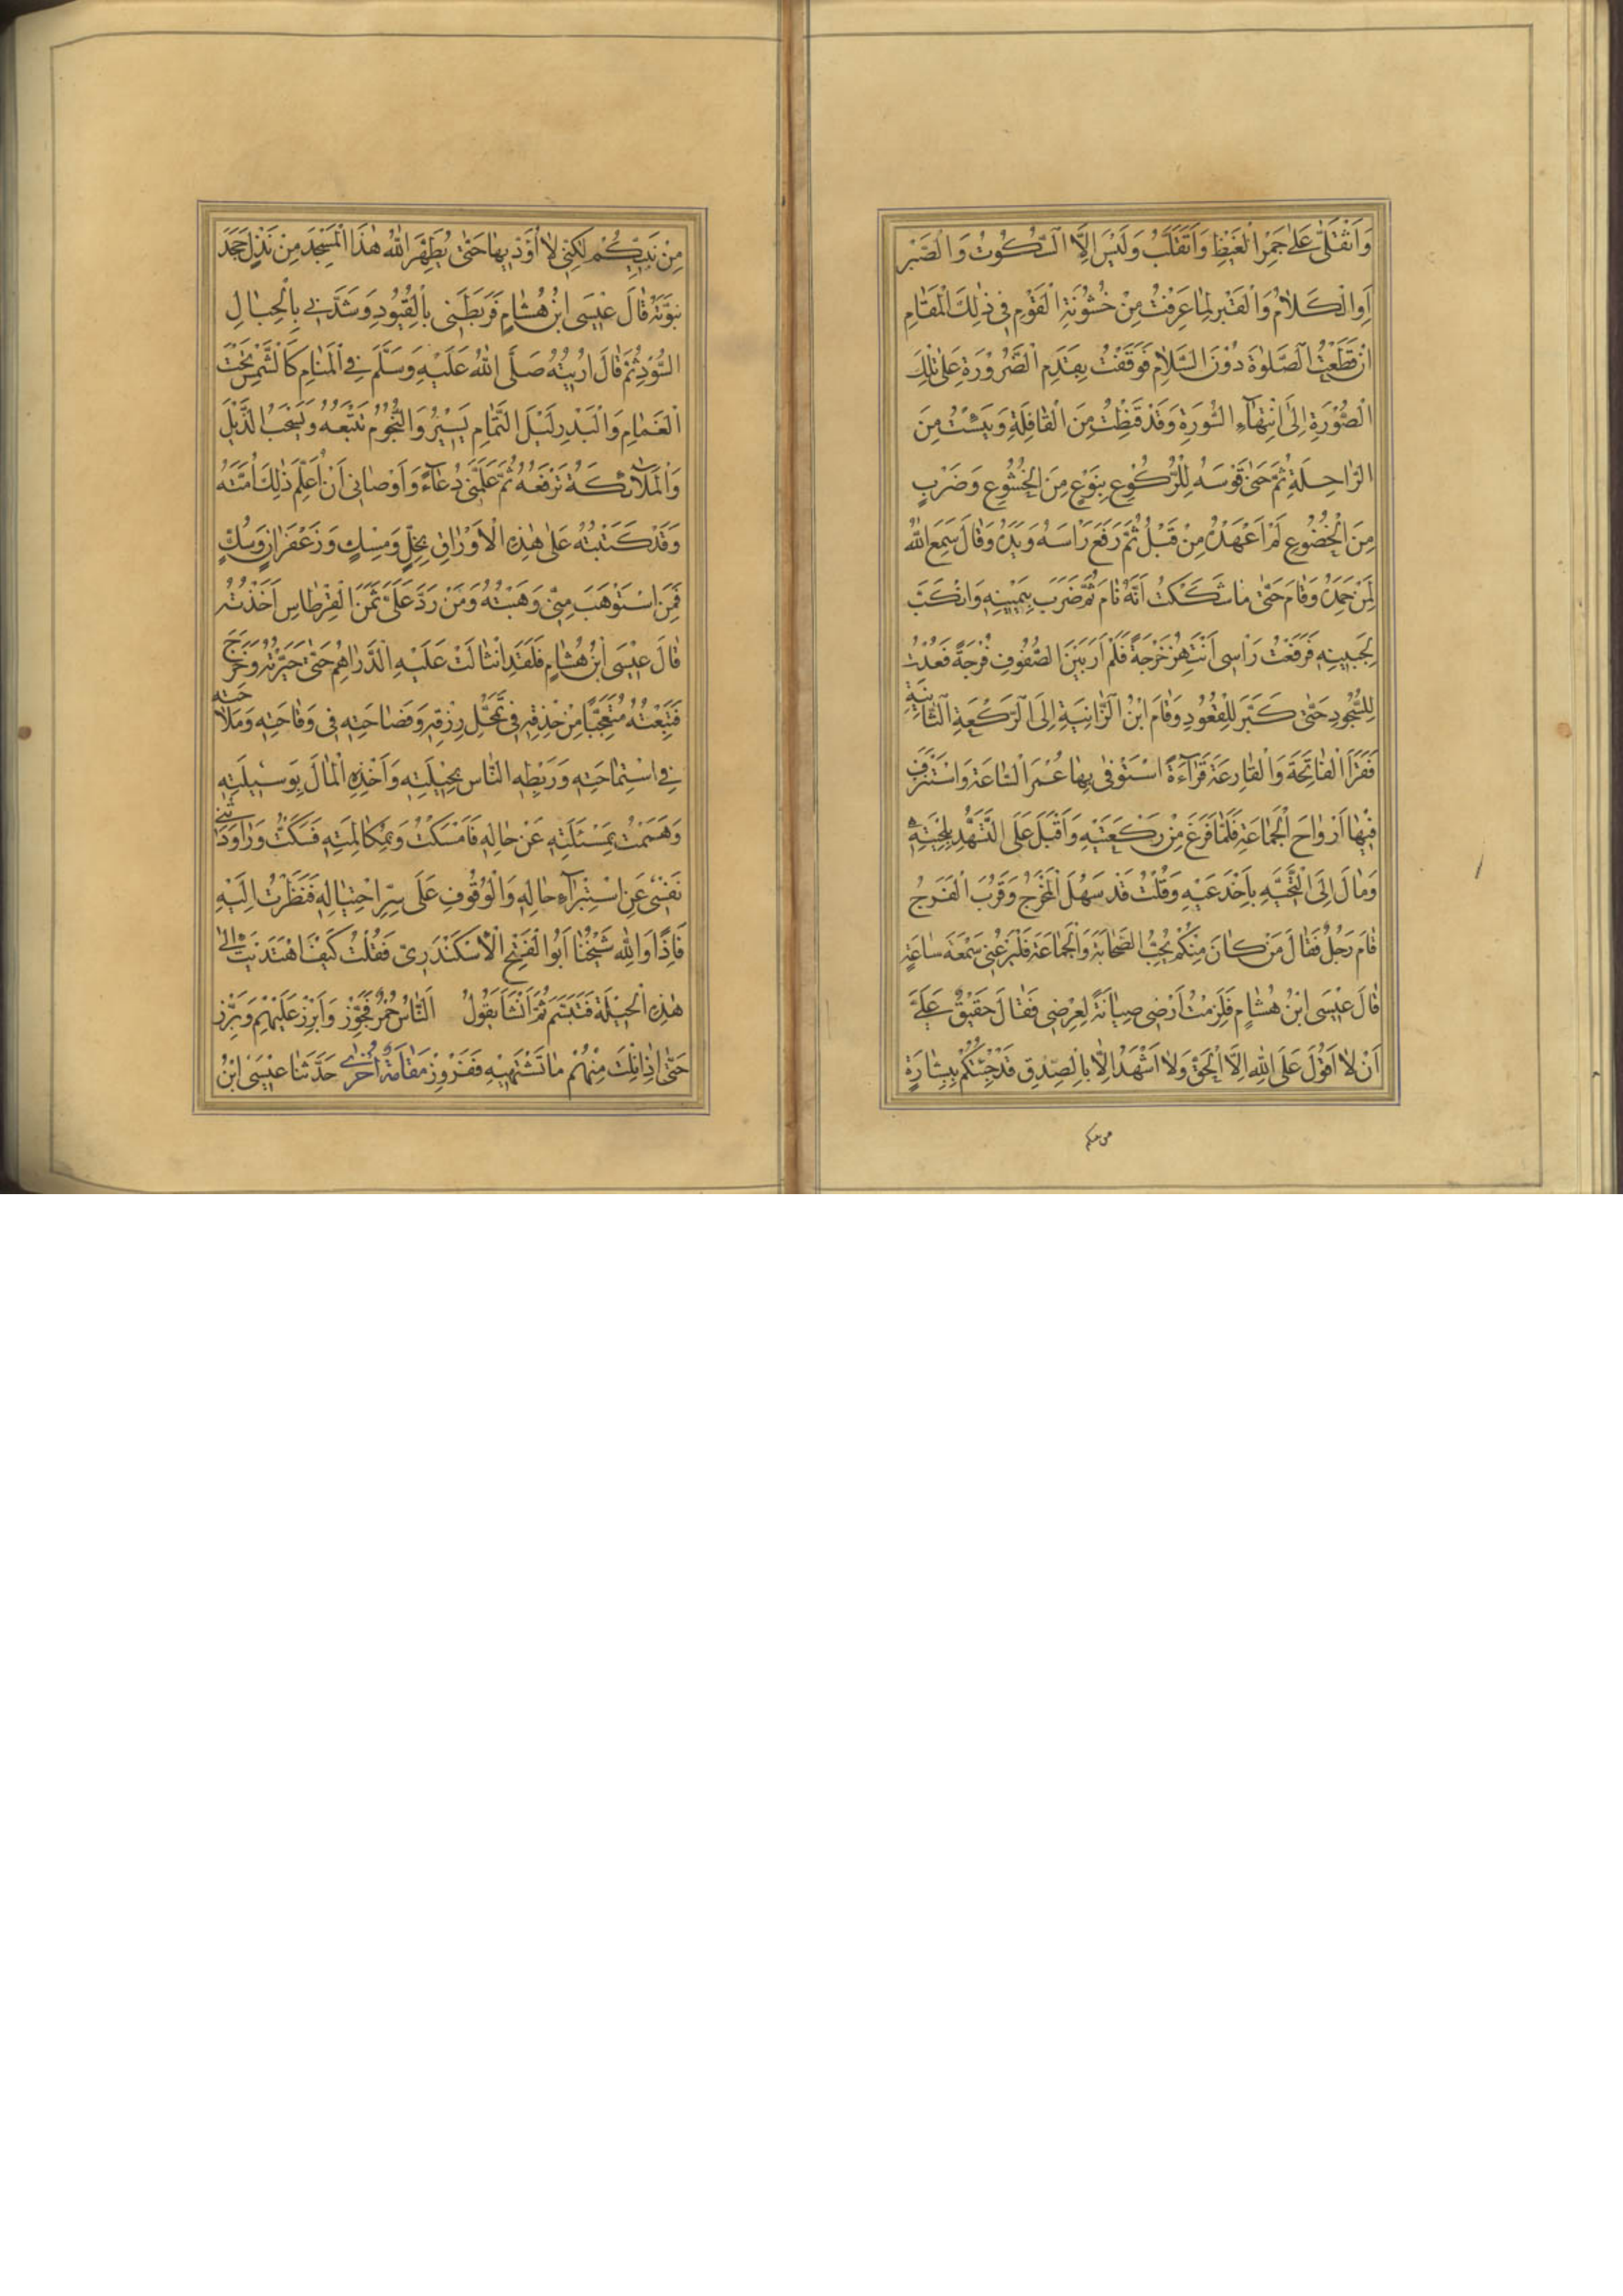 وَاَنْقَلىّٰ عَلىٰ جَمْرِ الْغَيْظِ وَاَتَقَلَّبُ وَلَيْسَ اِلَّا السُّكُوتُ وَالصَّبْرُ
اَوِ الْكَلاٰمُ وَالْقَبْرُ لِمٰا عَرَفْتُ مِنْ خُشُونَةِ الْقَوْمِ فى ذٰلِكَ الْمَقٰامِ
اَنْ قَطَعْتُ الصَّلوٰةَ دُوْنَ السَّلاٰمِ فَوَقَفْتُ بِقَدَمِ الضَّرُوْرَةِ عَلىٰ تِلْكَ
الْصُّوْرَةِ اِلىٰ اِنْتِهٰآءِ السُّوْرَةِ وَقَدْ قَنِطْتُ مِنَ الْقٰافِلَةِ وَيَئِسْتُ مِنَ
الرّٰاحِلَةِ ثُمَّ حَنىٰ قَوْسَهُ لِلْرُّكُوْعِ بِنَوْعٍ مِنَ الْخُشُوْعِ وَضَرْبٍ
مِنَ الْخُضُوْعِ لَمْ اَعْهَدْهُ مِنْ قَبْلُ ثُمَّ رَفَعَ رَاْسَهُ وَيَدَهُ وَقٰالَ سَمِعَ اللّٰهُ
لِمَنْ حَمِدَهُ وَقٰامَ حَتّٰى مٰا شَكَكْتُ اَنَّهُ نٰامَ ثُمَّ ضَرَبَ بِيَمْيِنِهِ وَانْكَبَّ
لِجَبيِنِهِ فَرَفَعْتُ رَاْسى اَنْتَهِزُ خَرْجَةً فَلَمْ اَرَ بَيْنَ الصُّفُوفِ فُرْجَةً فَعُدْتُ
لِلسُّجُودِ حَتّٰى كَبَّرَ لِلْقُعُودِ وَقٰامَ ابْنُ الزّٰانِيَةِ اِلَى الرَّكْعَةِ الثّٰانِيَةِ
فَقَرَاَ الْفٰاتِحَةَ وَالْقٰارِعَةَ قِرٰآءَةً اسْتَوْفىٰ بِهٰا عُمْرَ السّٰاعَةِ وَاسْتَنْزَفَ
فيٖهٰا اَرْوٰاحَ الْجَمٰاعَةِ فَلَمّٰا فَرَغَ مِنْ رَكْعَتَيْهِ وَاَقْبَلَ عَلَى التَّشَهُّدِ بِلِحْيَتِهِ
وَمٰالَ اِلَى التَّحِيَّةِ بِاَخْدَعَيْهِ وَقُلْتُ قَدْ سَهُلَ الْمَخْرَجُ وَقَرُبَ الْفَرَجُ
قٰامَ رَجُلٌ فَقٰالَ مَنْ كٰانَ مِنْكُمْ يُحِبُّ الصَّحٰابَةَ وَالْجَمٰاعَةَ فَلْيُرْعِنى سَمْعَهُ سٰاعَةً
قٰالَ عيٖسَى ابْنُ هُشٰامٍ فَلَزِمْتُ اَرْضى صِيٰانَةً لِعِرْضى فَقٰالَ حَقيٖقٌ عَلَىَّ
اَنْ لاٰ اَقُوْلَ عَلَى اللّٰهِ اِلَّا الْحَقَّ وَلاٰ اَشْهَدَ اِلّٰا بِالْصِّدْقِ قَدْ جِئْتُكُمْ بِبِشٰارَةٍ
مِنْ نَبِيِّكُمْ لٰكِنّى لاٰ اُؤَدّى بِهٰا حَتّٰى يُطَهِّرَ اللّٰهُ هٰذَا الْمَسْجِدَ مِنْ نَذْلٍ جَحَدَ
نُبُوَّتَهُ قٰالَ عيٖسَى ابْنُ هُشٰامٍ فَرَبَطَنى بِالْقُيُودِ وَشَدَّنى بِالْحِبٰالِ
السُّوْدِ ثُمَّ قٰالَ اُرٖيتُهُ صَلَّى اللّٰهُ عَلَيْهِ وَسَلَّمَ فِى الْمَنٰامِ كَالْشَّمْسِ تَحْتَ
الْغَمٰامِ وَالْبَدْرِ لَيْلَ التَّمٰامِ يَسيٖرُ وَالنُّجُوْمُ تَتْبَعُهُ وَيَسْحَبُ الذَّيْلَ
وَالْمَلاٰئِكَةُ تَرْفَعُهُ ثُمَّ عَلَّمَنى دُعٰآءً وَاَوْصٰانى اَنْ اُعَلِّمَ ذٰلِكَ اُمَّتَهُ
وَقَدْ كَتَبْتُهُ عَلىٰ هٰذِهِ الْاَوْرٰاقِ بِخَلٍّ وَمِسْكٍ وَزَعْفَرٰانٍ وَسُكٍّ
فَمَنِ اسْتَوْهَبَ مِنّى وَهَبْتُهُ وَمَنْ رَدَّ عَلَىَّ ثَمَنَ الْقِرْطٰاسِ اَخَذْتُهُ
قٰالَ عيٖسَى ابْنُ هُشٰامٍ فَلَقَدِ انْثٰالَتْ عَلَيْهِ الدَّرٰاهِمُ حَتّٰى حَيَّرَتْهُ وَخَرَجَ
فَتَبِعْتُهُ مُتَعَجِّبًا مِنْ حِذْقِهِ فى تَمَحُّلِ رِزْقِهِ وَفَصٰاحَتِهِ فى وَقٰاحَتِهِ وَمَلاٰحَتِهِ
فِى اسْتِمٰاحَتِهِ وَرَبْطِهِ النّٰاسَ بِحيٖلَتِهِ وَاَخْذِهِ الْمٰالَ بِوَسيٖلَتِهِ
وَهَمَمْتُ بِمَسْئَلَتِهِ عَنْ حٰالِهِ فَاَمْسَكْتُ وَبِمُكٰالَمَتِهِ فَسَكَتُّ وَرٰاوَدَتْنى
نَفْسى عَنِ اسْتِبْرٰآءِ حٰالِهِ وَالْوُقُوفِ عَلَى سِرِّ احْتِيٰالِهِ فَنَظَرْتُ اِلَيْهِ
فَاِذًا وَاللّٰهِ شَيْخُنٰا اَبُوا الْفَتْحِ الْاَسْكَنْدَرِىّ فَقُلْتُ كَيْفَ اهْتَدَيْتَ اِلىٰ
هٰذِهِ الْحيٖلَةِ فَتَبَسَّمَ ثُمَّ اَنْشَاَ يَقُوْلُ اَلنّٰاسُ حُمُرٌ فَجَوِّزْ وَاَبْرِزْ عَلَيْهِمْ وَبَرِّزْ
حَتّٰى اِذٰا نِلْتَ مِنْهُمْ مٰا تَشْتَهيٖهِ فَفَرْوِزْ مَقٰامَةٌ اُخْرىٰ حَدَّثَنٰا عيٖسَى ابْنُ